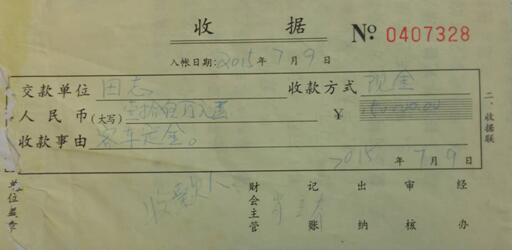 收 据
№ 0407328
入帐日期: 2015 年 7 月 9 日
交款单位 田志 收款方式 现金
人民币(大写) ¥
收款事由 客车定金。
2015 年 7 月 9 日
二、收据联
收款人
单位盖章 财会主管 记账 出纳 审核 经办